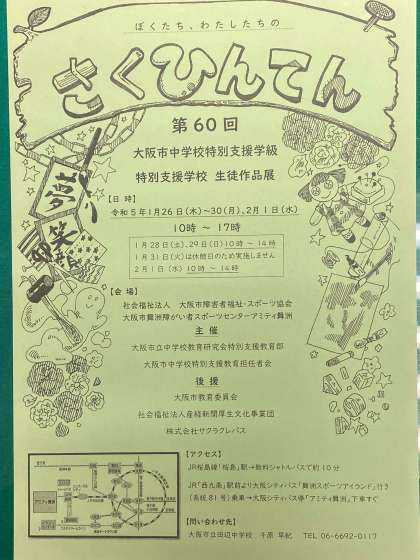 ぼくたち、わたしたちの
さくひんてん
第60回
大阪市中学校特別支援学級
特別支援学校 生徒作品展
【日 時】
令和5年1月26日(木)~30(月)、2月1日(水)
10時 ~ 17時
1月28日(土)、29日(日)10時 ~ 14時
1月31日(火)は休館日のため実施しません
2月1日(水)10時 ~ 14時
【会 場】
社会福祉法人 大阪市障害者福祉・スポーツ協会
大阪市舞洲障がい者スポーツセンターアミティ舞洲
主 催
大阪市立中学校教育研究会特別支援教育部
大阪市中学校特別支援教育担任者会
後 援
大阪市教育委員会
社会福祉法人産経新聞厚生文化事業団
株式会社サクラクレパス
夢
笑
【アクセス】
JR桜島線「桜島」駅→無料シャトルバスで約10分
JR「西九条」駅前より大阪シティバス「舞洲スポーツアイランド」行き
(系統81号)乗車→大阪シティバス停「アミティ舞洲」下車すぐ
【問い合わせ先】
大阪市立田辺中学校 千原 早紀 TEL 06-6692-0117